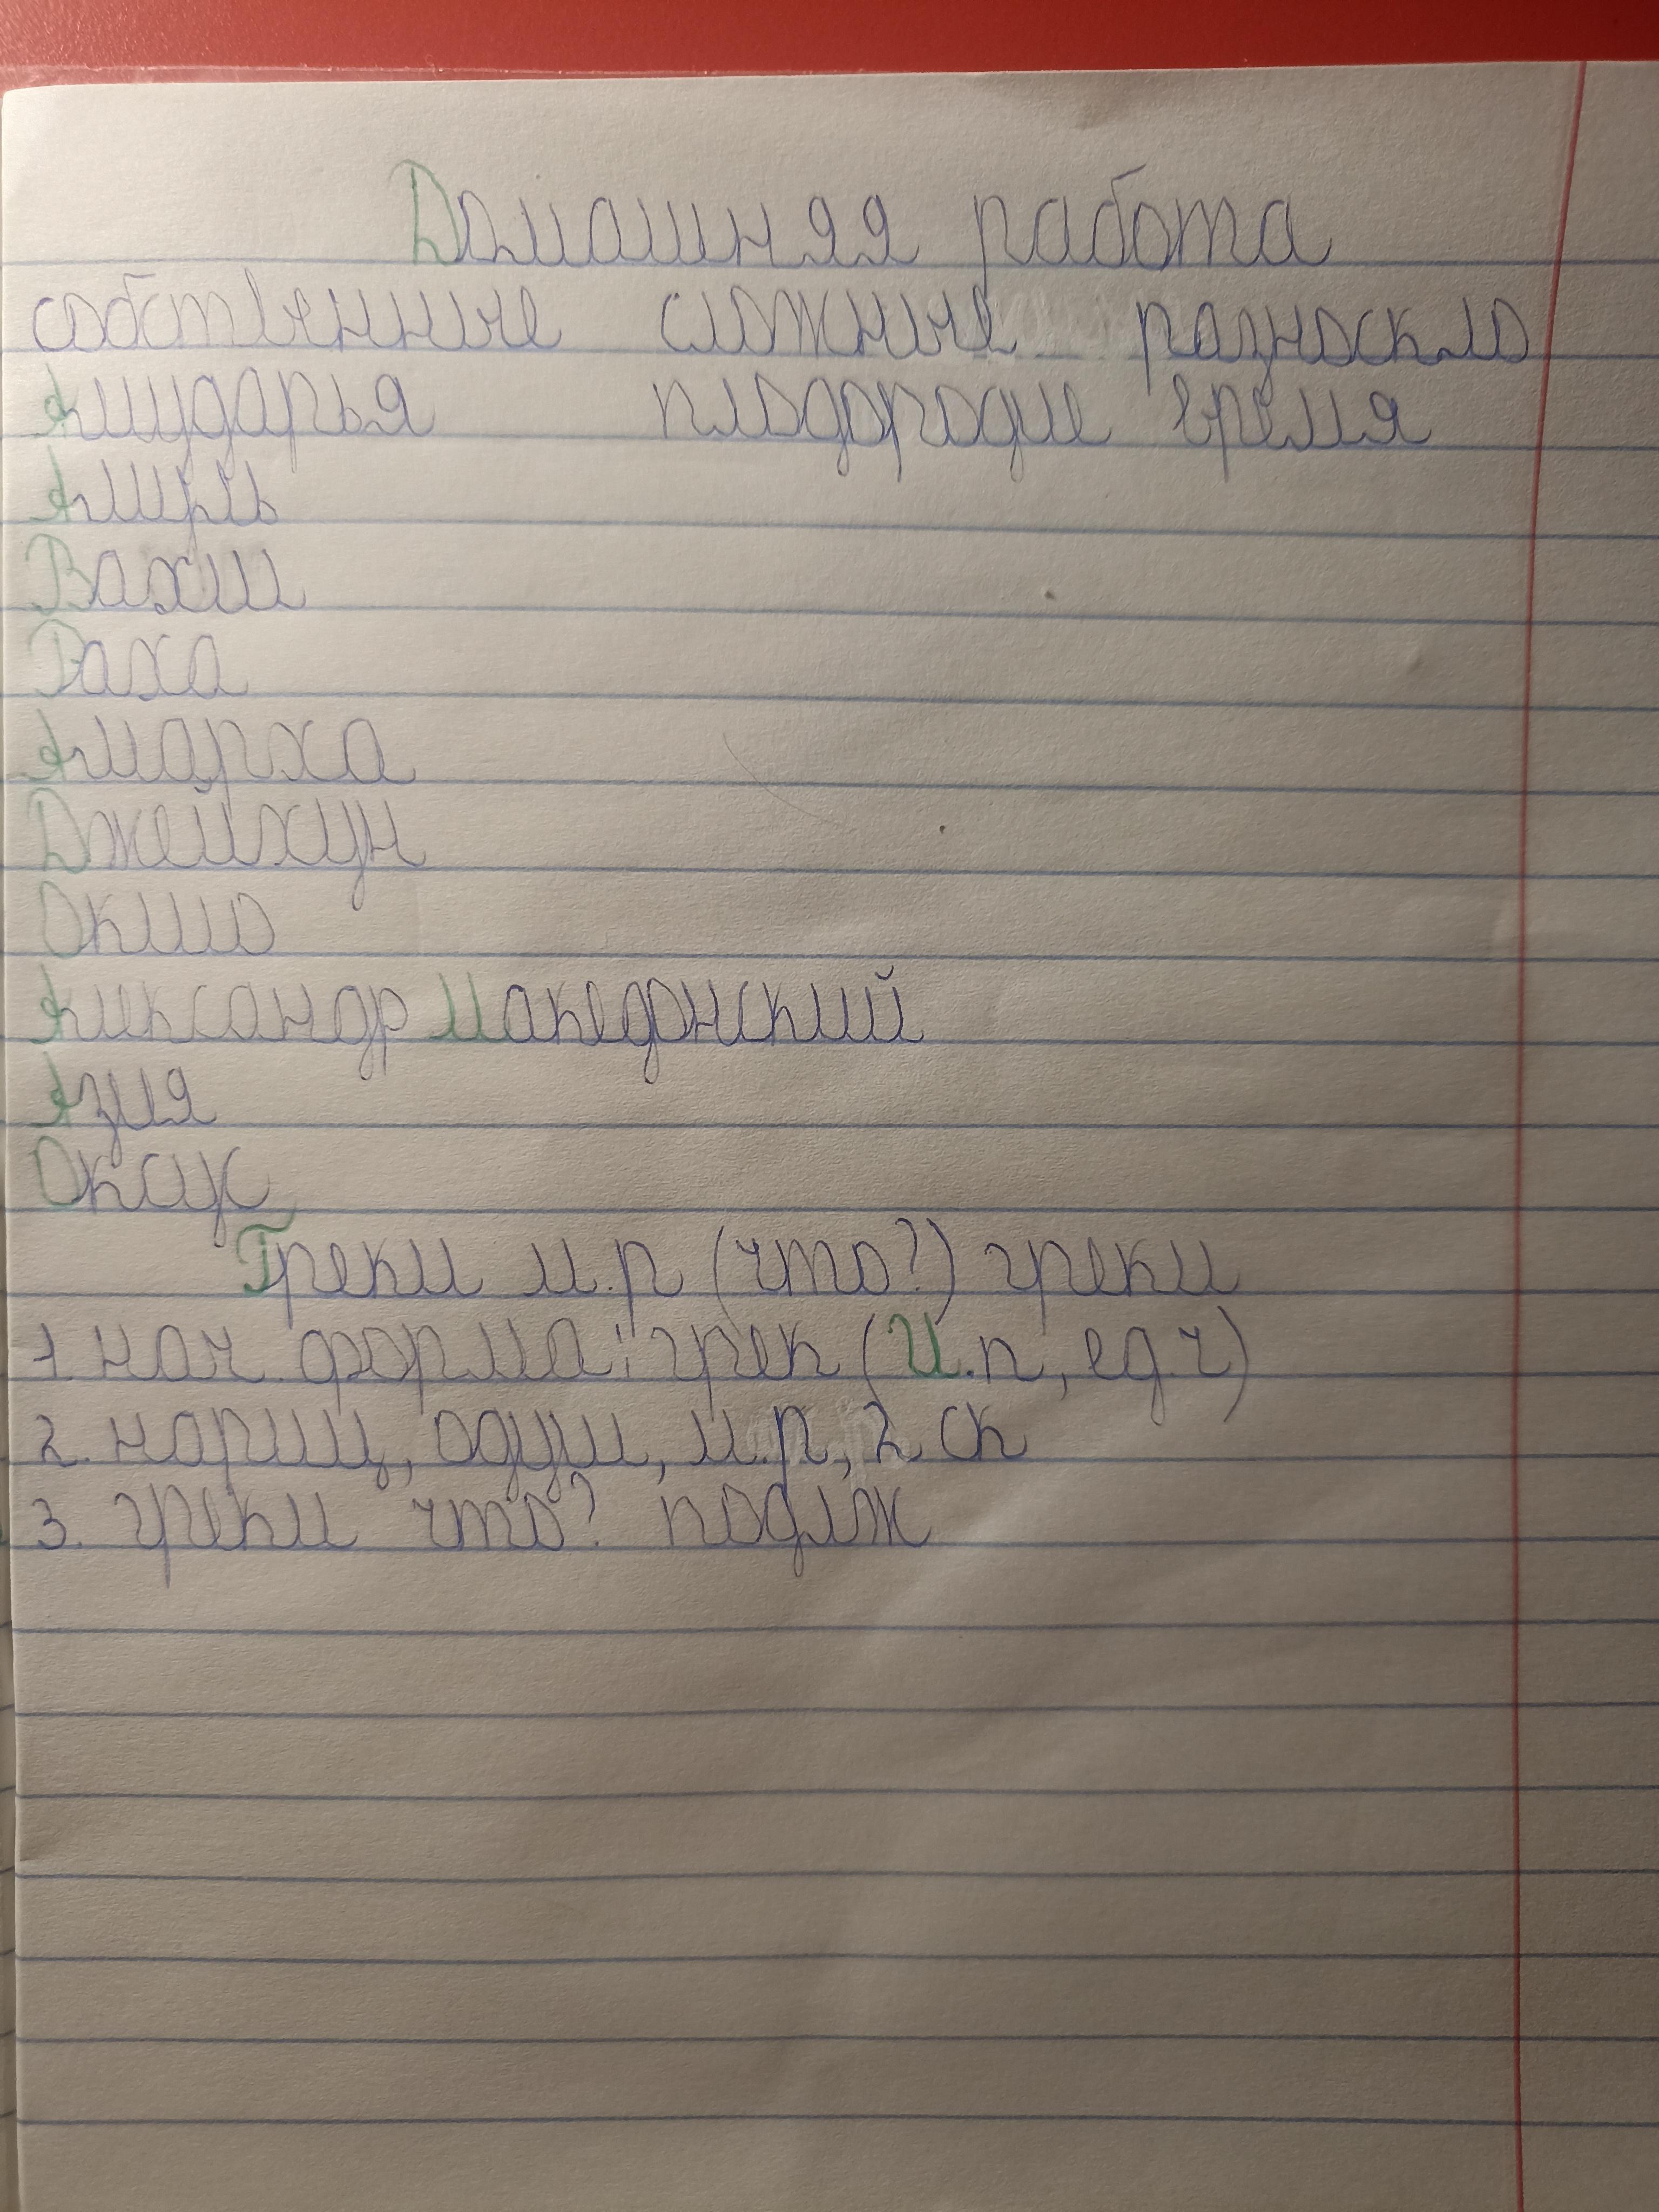 Домашняя работа
собственные сложные разноскло
Амударья плодородие время
Амуль
Вахш
Ваха
Амарха
Джейхун
Окшо
Александр Македонский
Азия
Окус
Греки м.р (что?) греки
1. нач. форма: грек (И.п, ед.ч)
2. нариц, одуш, м.р, 2 ск
3. греки что? подлж